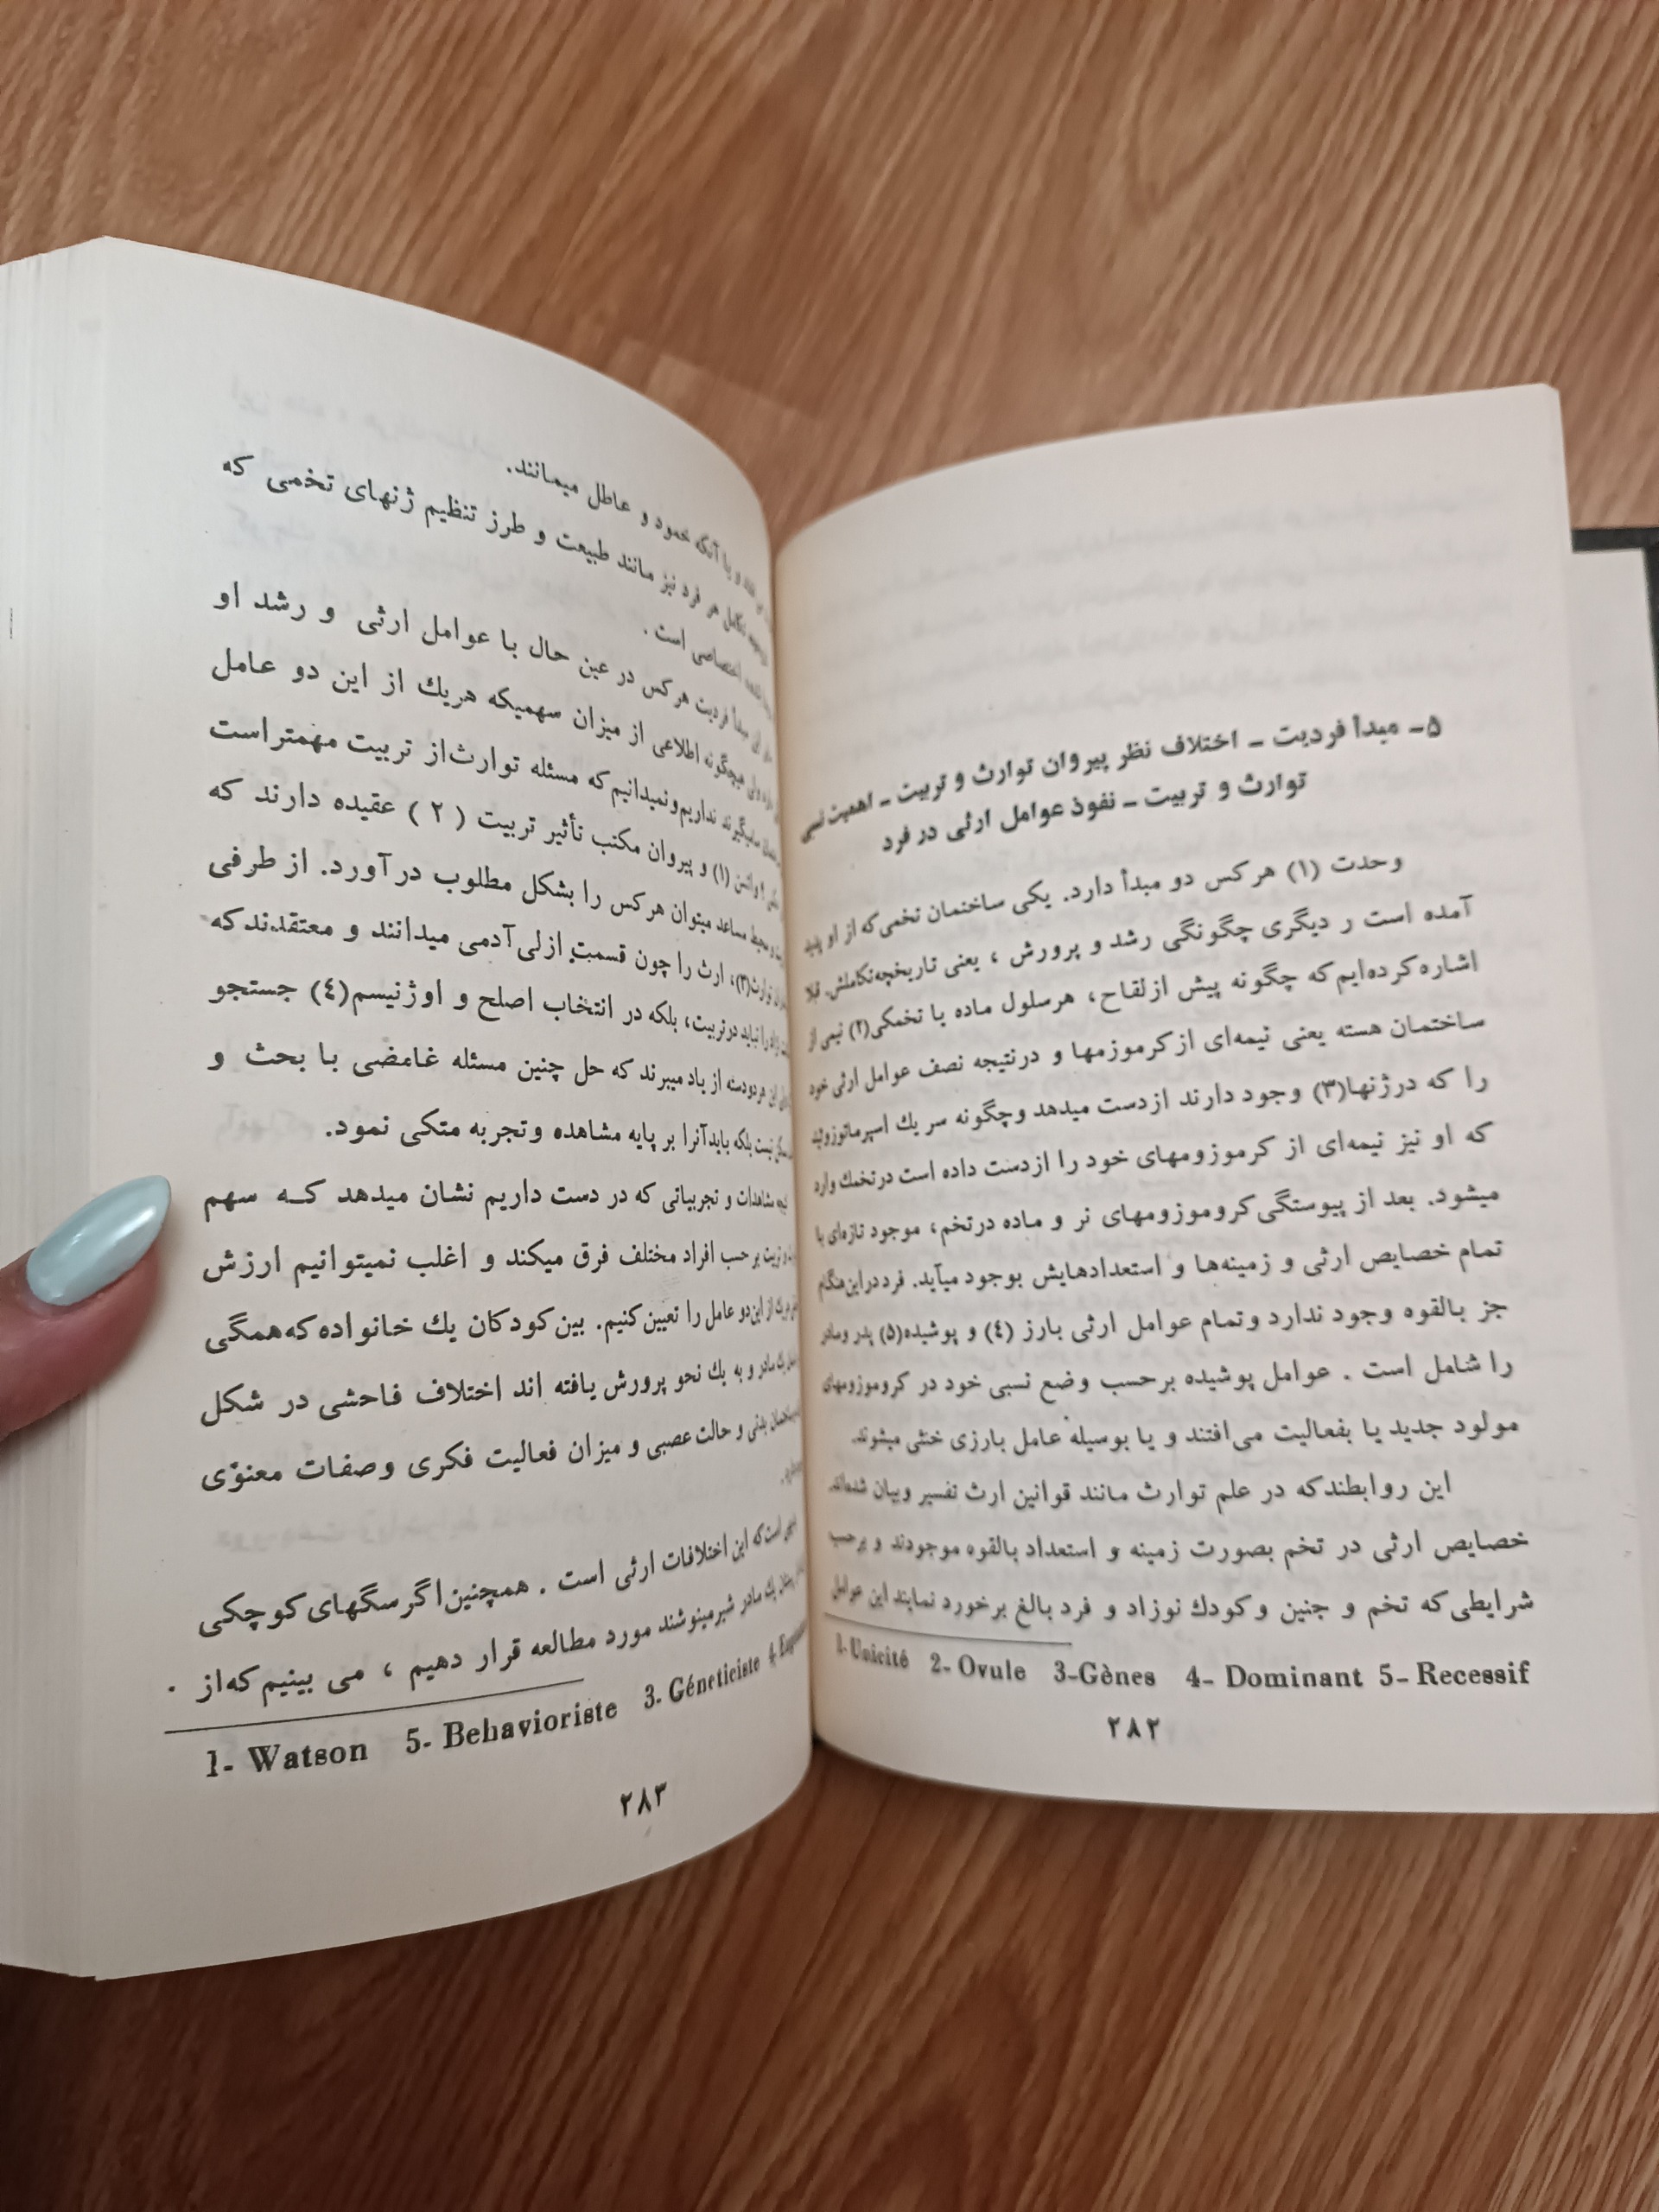 ۵- مبدأ فردیت - اختلاف نظر پیروان توارث و تربیت - اهمیت نسبی
توارث و تربیت - نفوذ عوامل ارثی در فرد
وحدت (۱) هرکس دو مبدأ دارد. یکی ساختمان تخمی که از او پدید
آمده است ر دیگری چگونگی رشد و پرورش ، یعنی تاریخچه تکاملش. قبلا
اشاره کرده‌ایم که چگونه پیش از لقاح، هر سلول ماده یا تخمکی(۲) نیمی از
ساختمان هسته یعنی نیمه‌ای از کرموزمها و درنتیجه نصف عوامل ارثی خود
را که درژنها(۳) وجود دارند از دست میدهد و چگونه سر یك اسپرماتوزوئید
که او نیز نیمه‌ای از کرموزومهای خود را از دست داده است در تخمك وارد
میشود. بعد از پیوستگی کروموزومهای نر و ماده درتخم، موجود تازه‌ای با
تمام خصایص ارثی و زمینه‌ها و استعدادهایش بوجود میآید. فرد در این هنگام
جز بالقوه وجود ندارد و تمام عوامل ارثی بارز (٤) و پوشیده(۵) پدر ومادر
را شامل است . عوامل پوشیده برحسب وضع نسبی خود در کروموزومهای
مولود جدید یا بفعالیت می‌افتند و یا بوسیله عامل بارزی خنثی میشوند.
این روابطند که در علم توارث مانند قوانین ارث تفسیر وبیان شده‌اند.
خصایص ارثی در تخم بصورت زمینه و استعداد بالقوه موجودند و برحسب
شرایطی که تخم و جنین و کودك نوزاد و فرد بالغ برخورد نمایند این عوامل
1- Unicité 2- Ovule 3-Gènes 4- Dominant 5- Recessif
۲۸۲
و یا آنکه خمود و عاطل میمانند.
تکامل هر فرد نیز مانند طبیعت و طرز تنظیم ژنهای تخمی که
اختصاصی است .
مبدأ فردیت هرکس در عین حال با عوامل ارثی و رشد او
ولی هیچگونه اطلاعی از میزان سهمیکه هریك از این دو عامل
میگیرند نداریم ونمیدانیم که مسئله توارث از تربیت مهمتر است
واتسن (۱) و پیروان مکتب تأثیر تربیت ( ۲ ) عقیده دارند که
محیط مساعد میتوان هرکس را بشکل مطلوب درآورد. از طرفی
توارث(۳)، ارث را چون قسمت ازلی آدمی میدانند و معتقدند که
را نباید در تربیت، بلکه در انتخاب اصلح و اوژنیسم(٤) جستجو
این هردودسته از یاد میبرند که حل چنین مسئله غامضی با بحث و
نیست بلکه باید آنرا بر پایه مشاهده و تجربه متکی نمود.
مشاهدات و تجربیاتی که در دست داریم نشان میدهد کـه سهم
تربیت برحسب افراد مختلف فرق میکند و اغلب نمیتوانیم ارزش
هریك از این دو عامل را تعیین کنیم. بین کودکان یك خانواده که همگی
یك مادر و به یك نحو پرورش یافته اند اختلاف فاحشی در شکل
ساختمان بدنی و حالت عصبی و میزان فعالیت فکری وصفات معنوی
است که این اختلافات ارثی است . همچنین اگر سگهای کوچکی
یك مادر شیرمینوشند مورد مطالعه قرار دهیم ، می بینیم که از
1- Watson 5- Behavioriste 3. Géneticiste
۲۸۳